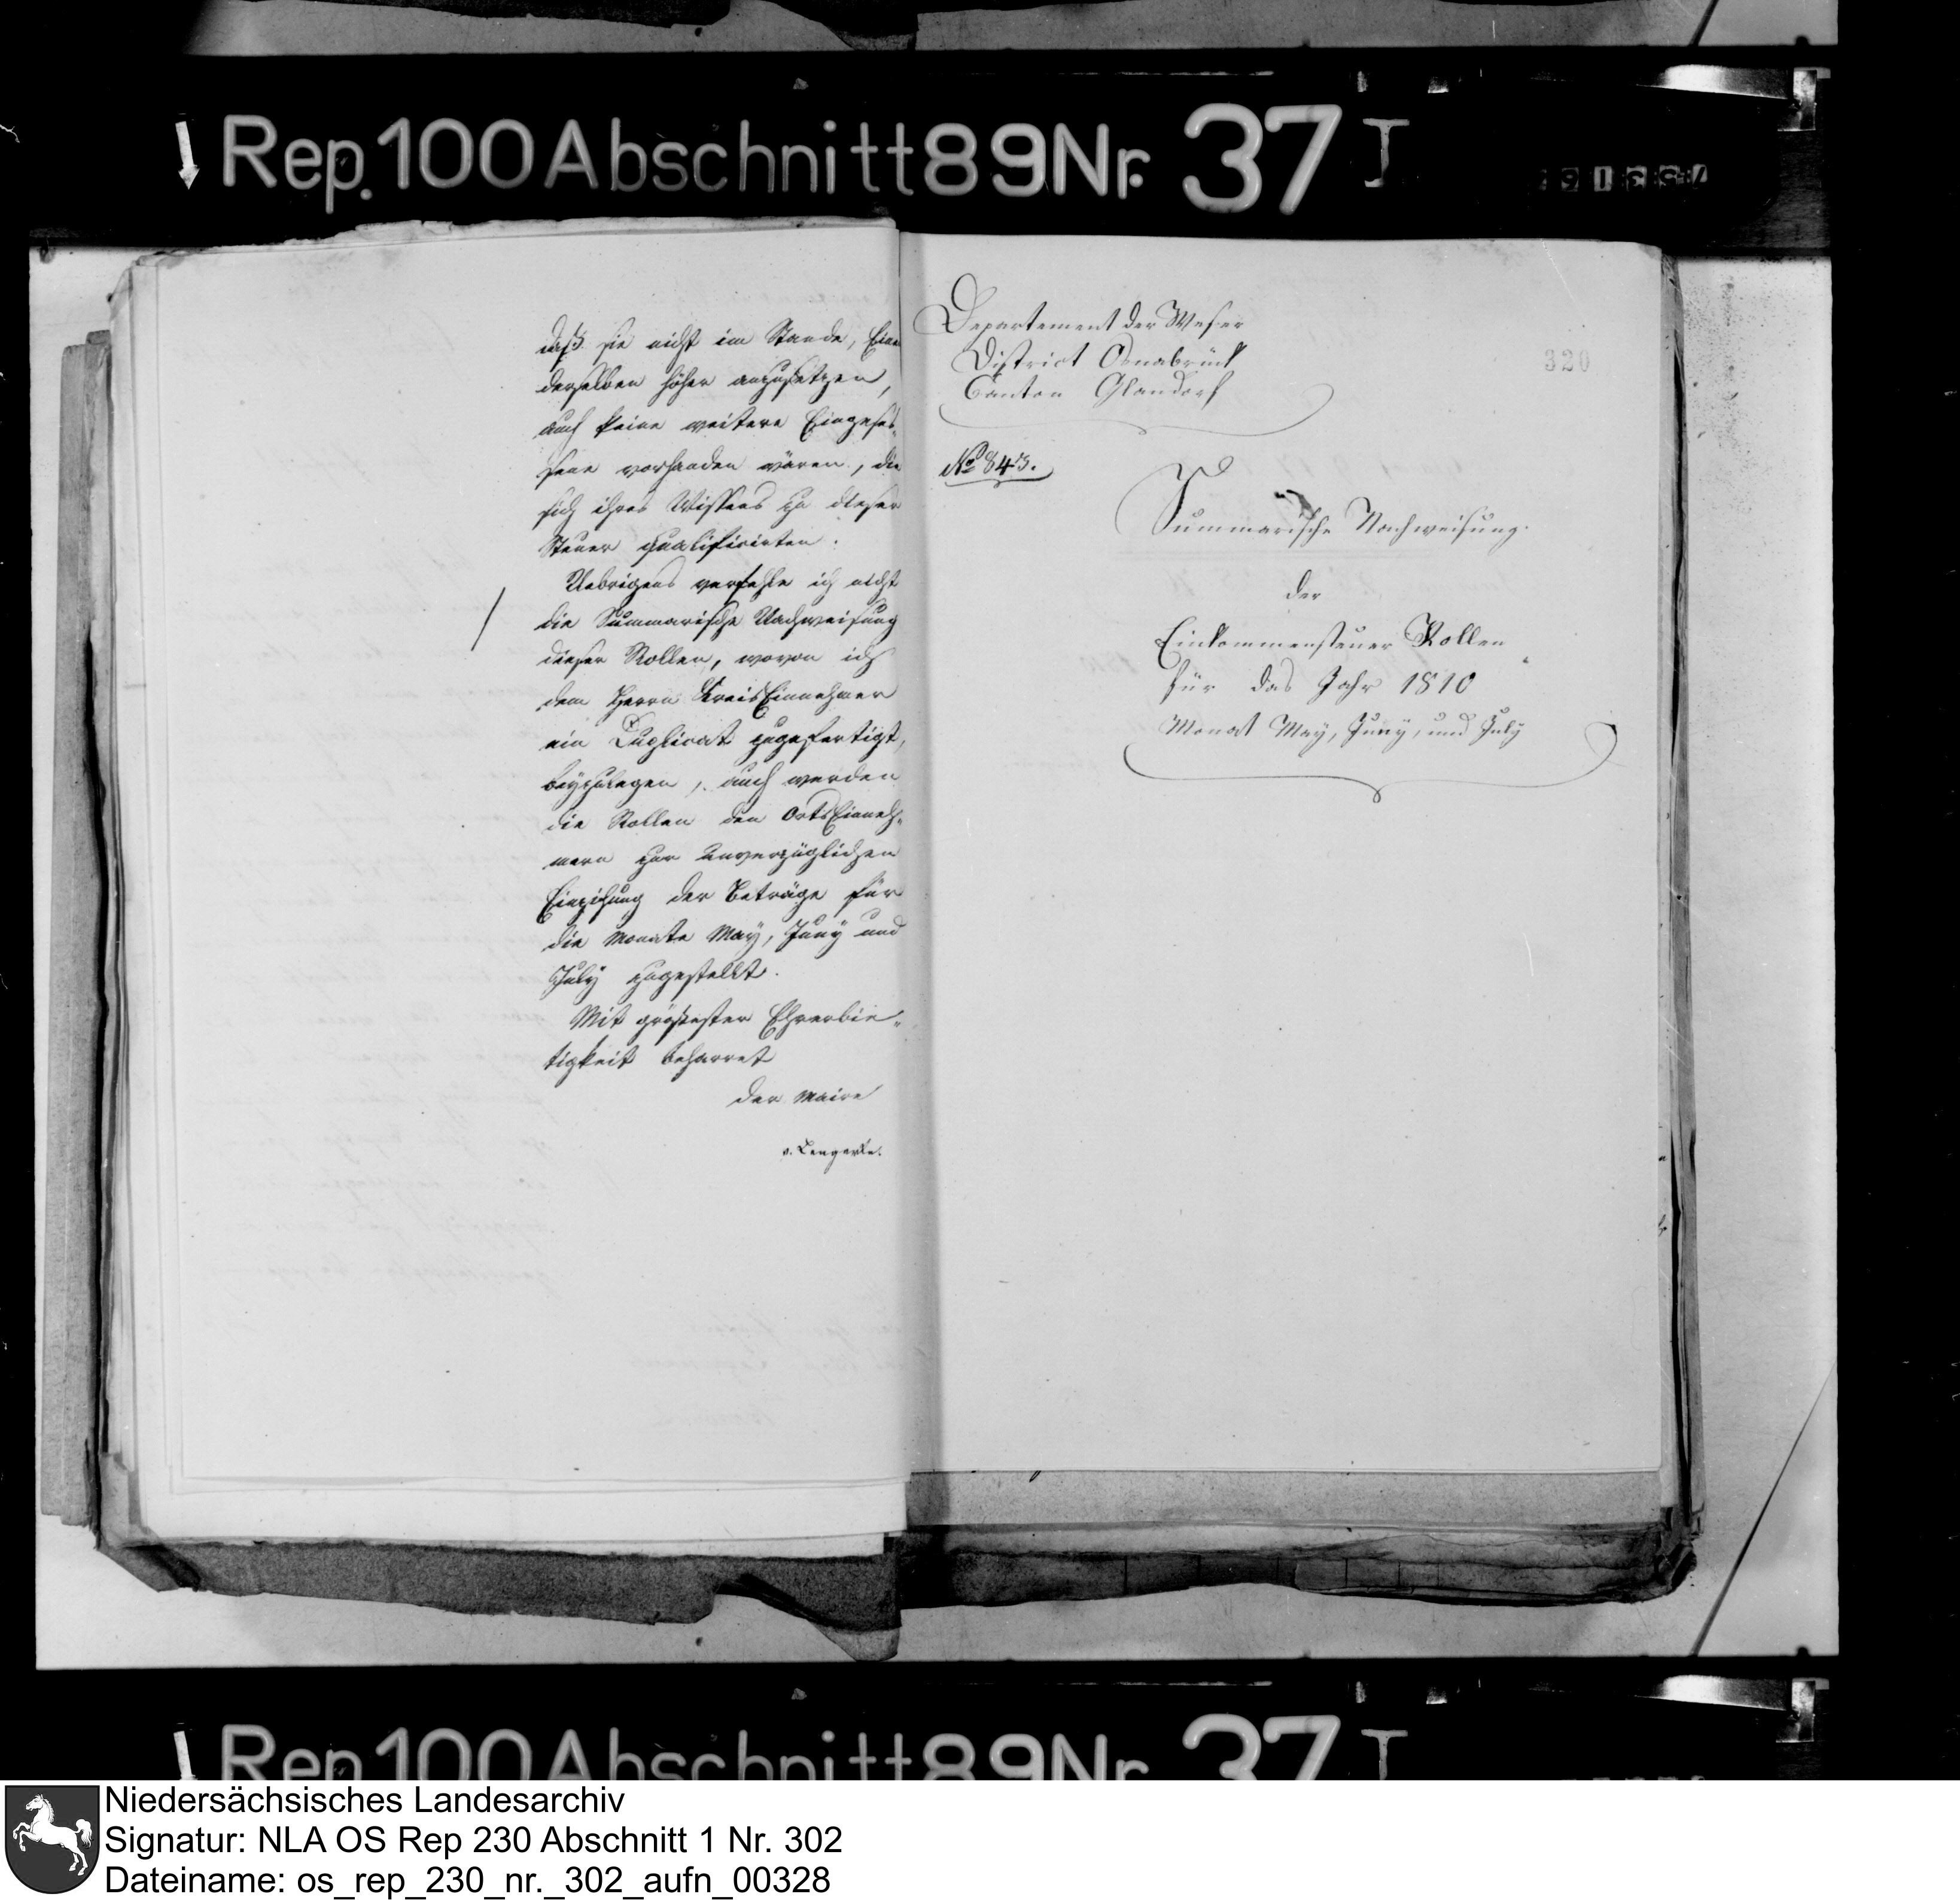 Rep. 100 Abschnitt 89 Nr. 37 I
daß sie nicht im Stande, Einen
derselben höher anzusetzen,
auch keine weitere Eingeses-
sene vorhanden wären, die
sich ihres Wissens zu dieser
Steuer qualificirten.
Uebrigens verfehle ich nicht
die Summarische Nachweisung
dieser Rollen, wovon ich
dem Herrn KreisEinnehmer
ein Duplicat zugefertigt,
beyzulegen, auch werden
die Rollen den OrtsEinneh-
mern zur unverzüglichen
Einzihung der Beträge für
die Monate May, Juny und
July zugestellt.
Mit größester Ehrerbie-
tigkeit beharret
der Maire
v. Lengerke.
Departement der Weser
District Osnabrück
Canton Glandorf
320
No 843.
Summarische Nachweisung
der
Einkommensteuer Rollen
für das Jahr 1810
Monat May, Juny, und July
Rep. 100 Abschnitt 89 Nr. 37 I
Niedersächsisches Landesarchiv
Signatur: NLA OS Rep 230 Abschnitt 1 Nr. 302
Dateiname: os_rep_230_nr._302_aufn_00328